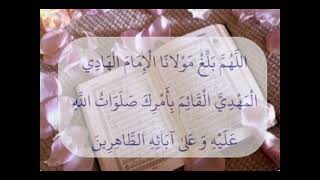 اللَّهُمَّ بَلِّغْ مَوْلَانَا الْإِمَامَ الْهَادِيَ
الْمَهْدِيَّ الْقَائِمَ بِأَمْرِكَ صَلَوَاتُ اللَّهِ
عَلَيْهِ وَ عَلَى آبَائِهِ الطَّاهِرِينَ